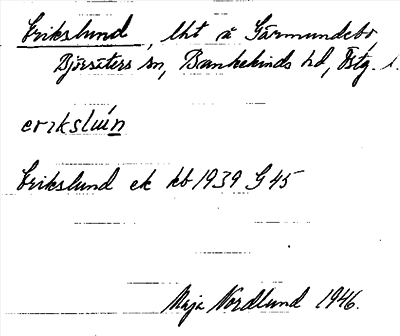 Erikslund, lht å Särmundebo
Björsäters sn, Bankekinds hd, Östg. l.
erıksluǹn
Erikslund ek kb 1939 G 45
Maja Nordlund 1946.